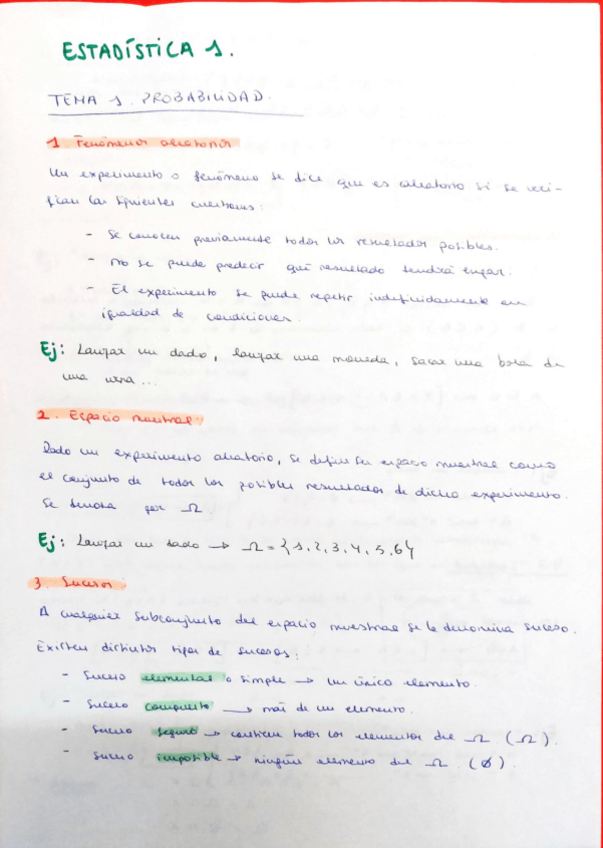 ESTADÍSTICA 1.
TEMA 1. PROBABILIDAD.
1. Fenómenos aleatorios
Un experimento o fenómeno se dice que es aleatorio si se veri-
fican las siguientes cuestiones:
- Se conocen previamente todos los resultados posibles.
- No se puede predecir qué resultado tendrá lugar.
- El experimento se puede repetir indefinidamente en
igualdad de condiciones.
Ej: Lanzar un dado, lanzar una moneda, sacar una bola de
una urna...
2. Espacio muestral
Dado un experimento aleatorio, se define su espacio muestral como
el conjunto de todos los posibles resultados de dicho experimento.
Se denota por Ω
Ej: Lanzar un dado → Ω = {1, 2, 3, 4, 5, 6}
3. Sucesos
A cualquier subconjunto del espacio muestral se le denomina suceso.
Existen distintos tipos de sucesos:
- Suceso elemental o simple → un único elemento.
- Suceso compuesto → más de un elemento.
- Suceso seguro → contiene todos los elementos de Ω (Ω).
- Suceso imposible → ningún elemento de Ω. (Ø).